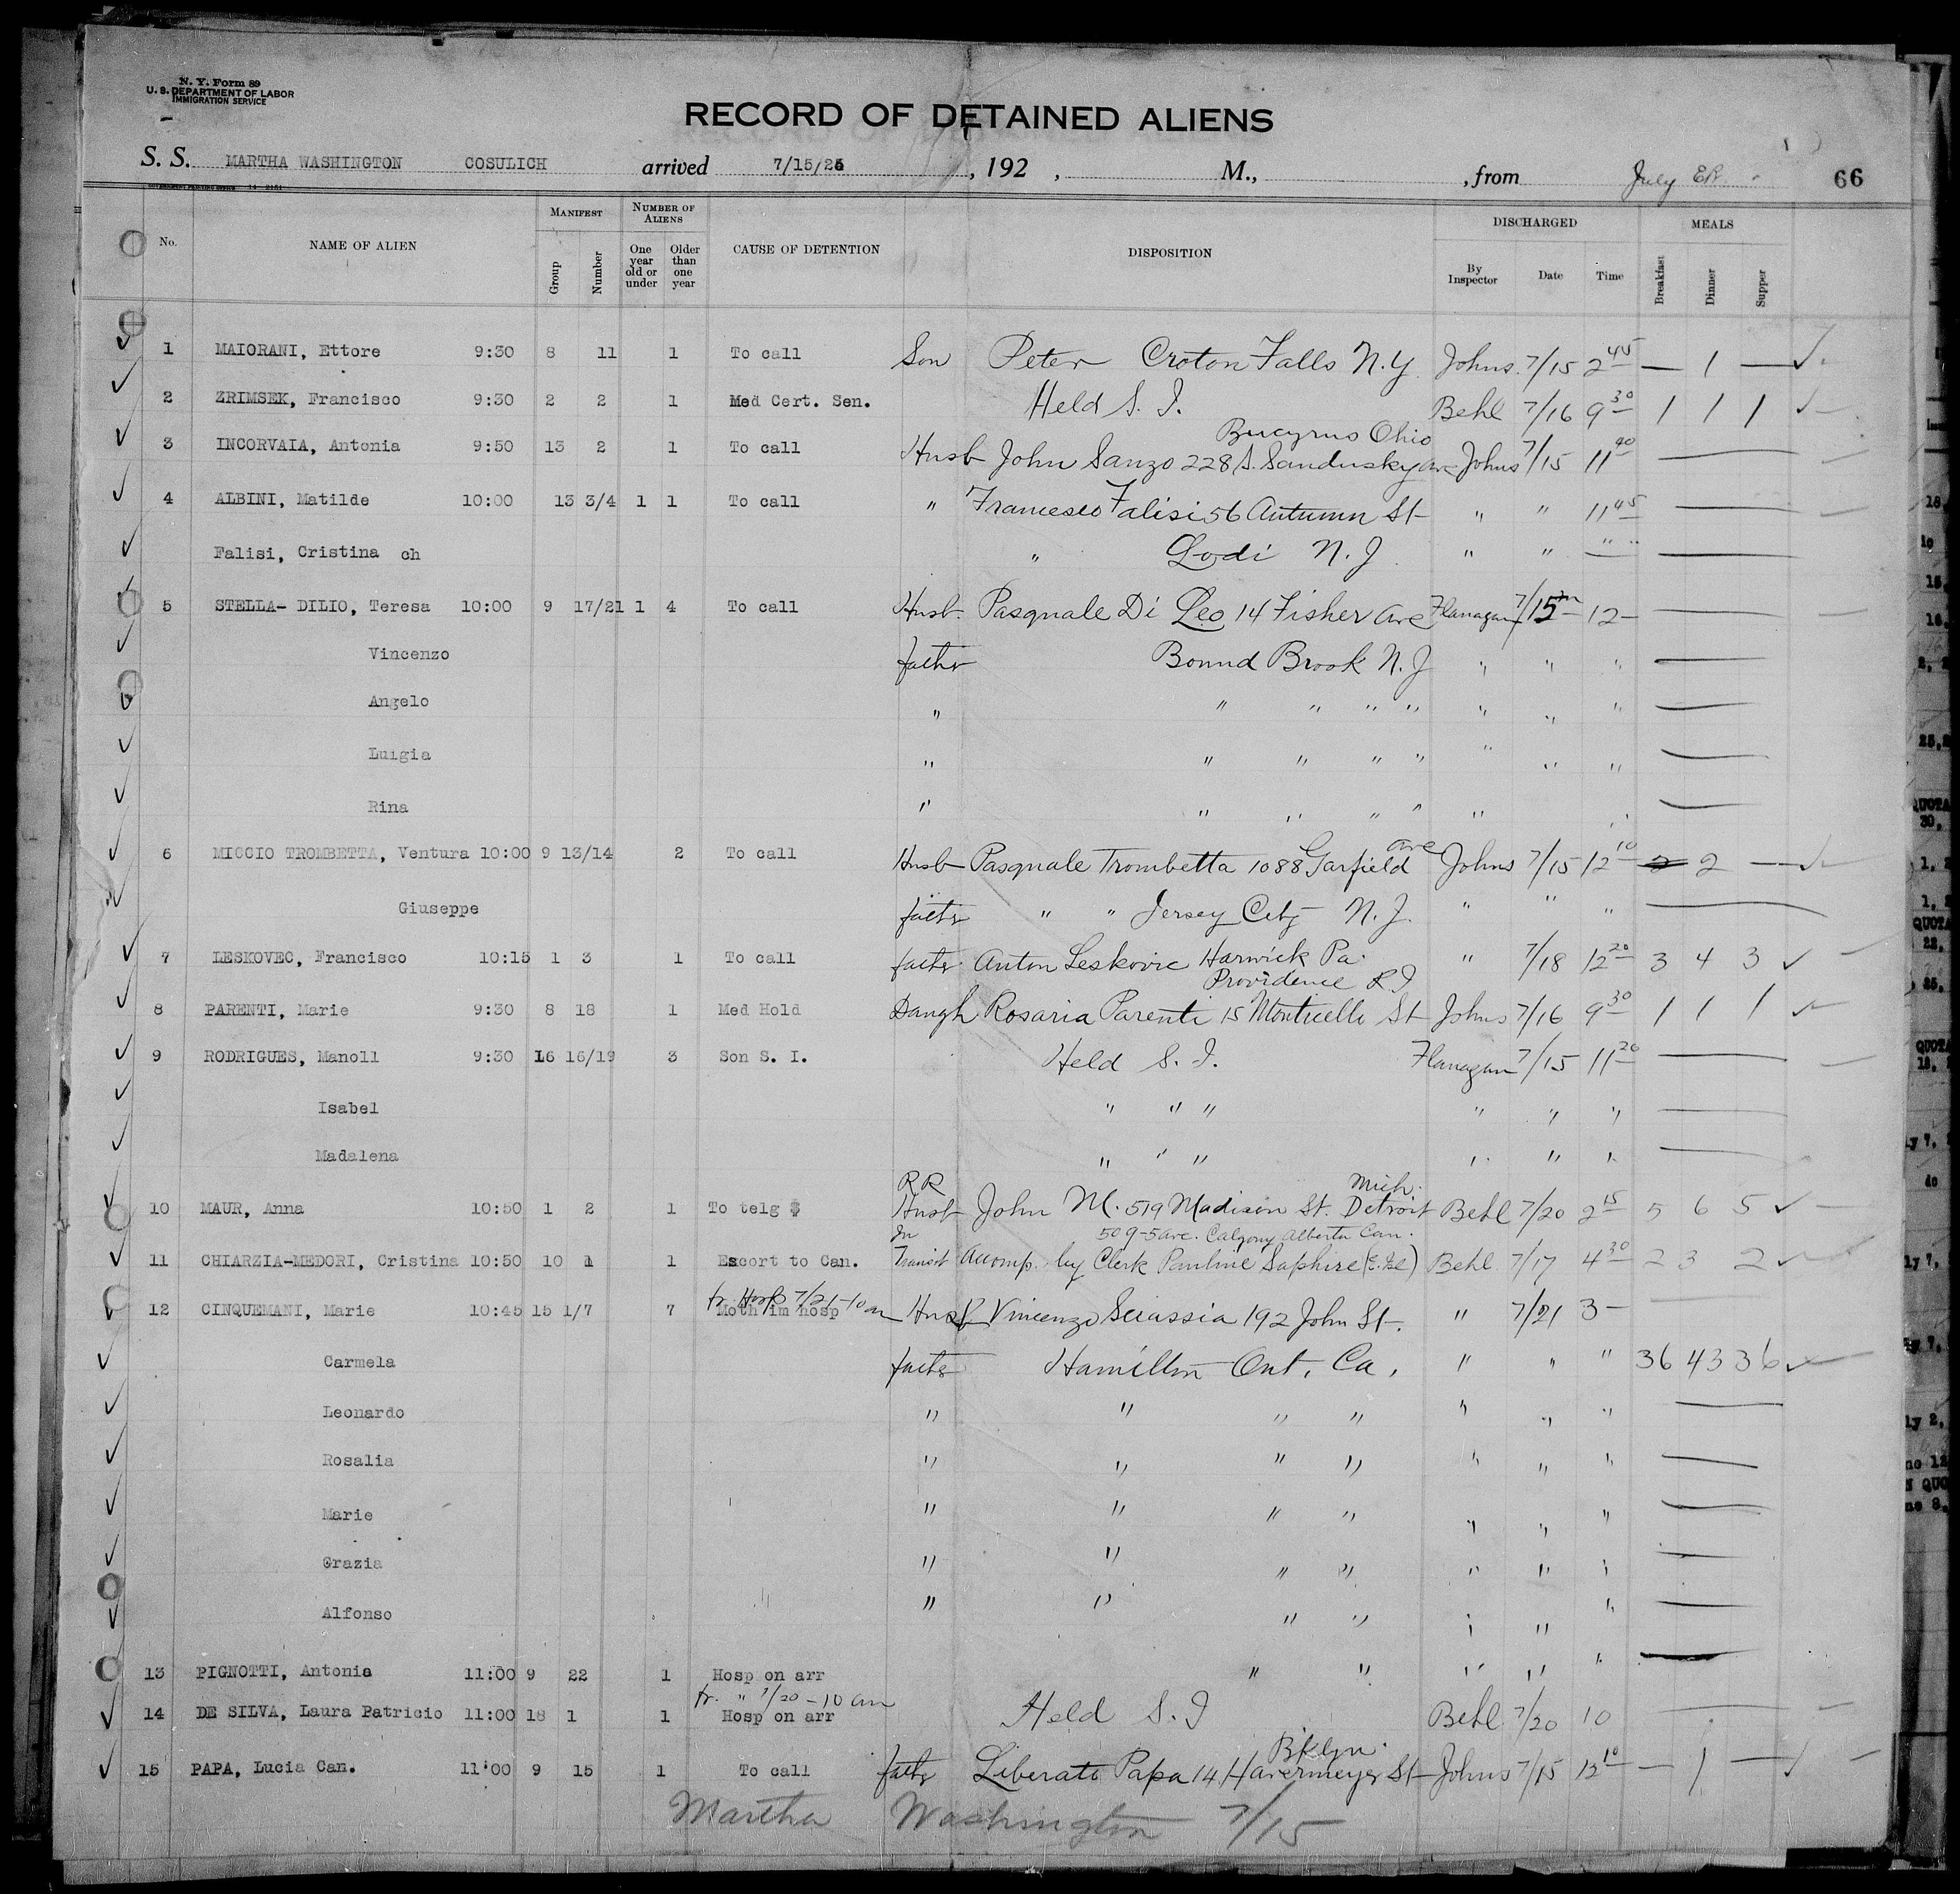 N. Y. Form 89
U. S. DEPARTMENT OF LABOR
IMMIGRATION SERVICE
RECORD OF DETAINED ALIENS
S. S. MARTHA WASHINGTON COSULICH arrived 7/15/26 , 192 , M., , from July 66
No. NAME OF ALIEN MANIFEST Group Number NUMBER OF ALIENS One year old or under Older than one year CAUSE OF DETENTION DISPOSITION DISCHARGED By Inspector Date Time MEALS Breakfast Dinner Supper
1 MAIORANI, Ettore 9:30 8 11 1 To call Son Peter Croton Falls N.Y. Johns 7/15 2 45 — 1 —
2 ZRIMSEK, Francisco 9:30 2 2 1 Med Cert. Sen. Held S. I. Behl 7/16 9 30 1 1 1
Bucyrus Ohio
3 INCORVAIA, Antonia 9:50 13 2 1 To call Husb John Sanzo 228 S. Sandusky ave Johns 7/15 11
4 ALBINI, Matilde 10:00 13 3/4 1 1 To call " Francesco Falisi 56 Autumn St " " 11 45
Falisi, Cristina ch " Lodi N. J. " " " "
5 STELLA- DILIO, Teresa 10:00 9 17/21 1 4 To call Husb. Pasquale Di Leo 14 Fisher Ave Flanagan 7/15 12 —
Vincenzo father Bound Brook N. J " " "
Angelo " " " " " " " "
Luigia " " " " " " " "
Rina " " " " " " " "
6 MICCIO TROMBETTA, Ventura 10:00 9 13/14 2 To call Husb Pasquale Trombetta 1088 Garfield ave Johns 7/15 12 10 2 2 —
Giuseppe father " " Jersey City N. J. " " "
7 LESKOVEC, Francisco 10:15 1 3 1 To call father Anton Leskovic Harwick Pa. " 7/18 12 20 3 4 3
Providence R. I
8 PARENTI, Marie 9:30 8 18 1 Med Hold Daugh Rosaria Parenti 15 Monticello St Johns 7/16 9 30 1 1 1
9 RODRIGUES, Manoll 9:30 16 16/19 3 Son S. I. Held S. I. Flanagan 7/15 11 20
Isabel " " " " " "
Madalena " " " " " "
RR Mich.
10 MAUR, Anna 10:50 1 2 1 To telg $ Husb John M. 519 Madison St. Detroit Behl 7/20 2 15 5 6 5
In 509-5 ave. Calgary Alberta Can.
11 CHIARZIA-MEDORI, Cristina 10:50 10 1 1 Escort to Can. Transit Accomp. by Clerk Pauline Saphire Behl 7/17 4 30 2 3 2
tr. Hosp 7/21-10 am
12 CINQUEMANI, Marie 10:45 15 1/7 7 Moth im hosp Husb Vincenzo Sciassia 192 John St. " 7/21 3 —
Carmela father Hamilton Ont. Ca. " " " 36 43 36
Leonardo " " " " " " "
Rosalia " " " " " " "
Marie " " " " " " "
Grazia " " " " " " "
Alfonso " " " " " " "
13 PIGNOTTI, Antonia 11:00 9 22 1 Hosp on arr " " " " "
tr. " 7/20 - 10 am
14 DE SILVA, Laura Patricio 11:00 18 1 1 Hosp on arr Held S. I Behl 7/20 10
Bklyn.
15 PAPA, Lucia Can. 11:00 9 15 1 To call father Liberato Papa 14 Havermeyer St Johns 7/15 12 10 — 1 —
Martha Washington 7/15